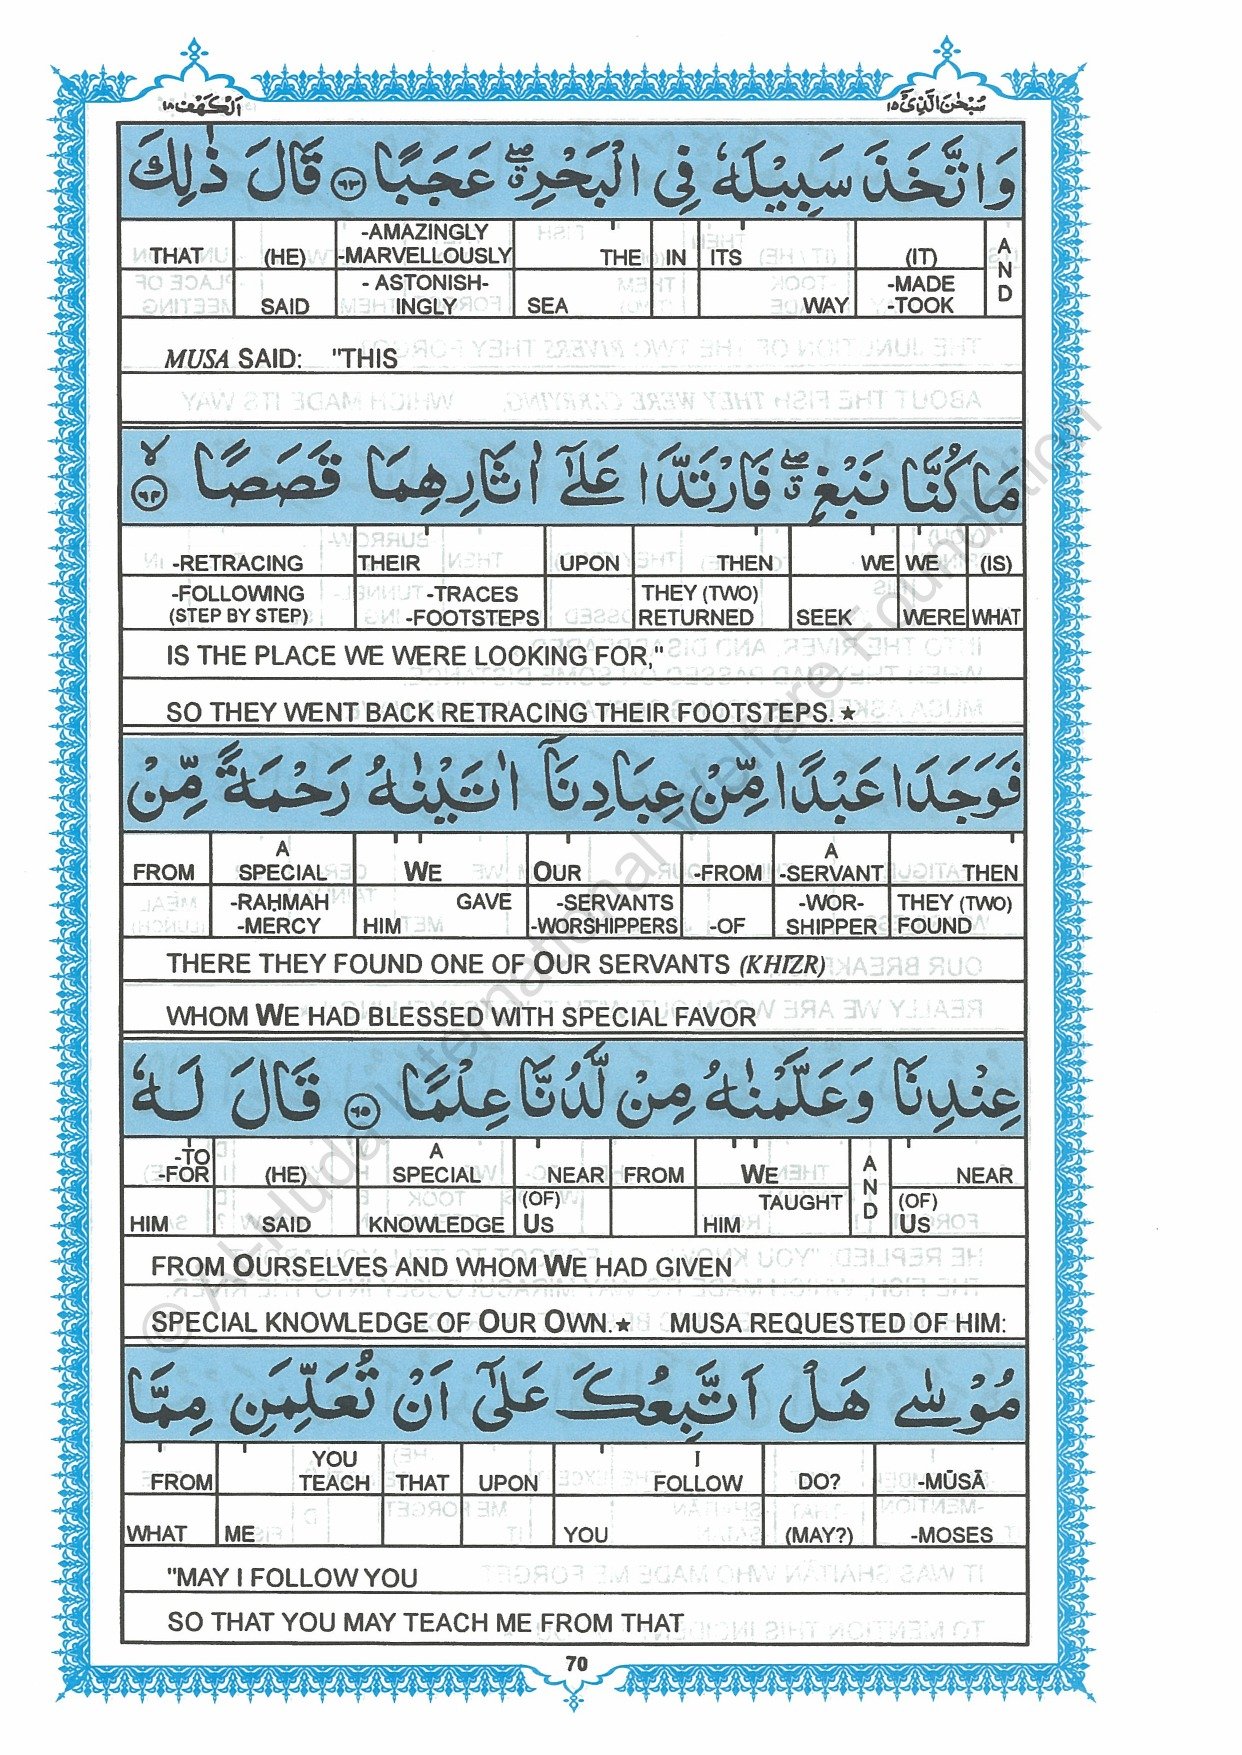 اَلْكَهْف ١٨ سُبْحٰنَ الَّذِیْۤ ١٥
وَاتَّخَذَ سَبِيْلَهٗ فِي الْبَحْرِ ۖۗ عَجَبًا ﴿٦٣﴾ قَالَ ذٰلِكَ
THAT (HE) -AMAZINGLY -MARVELLOUSLY THE IN ITS (IT) AND
SAID - ASTONISH-INGLY SEA WAY -MADE -TOOK
MUSA SAID: "THIS
مَا كُنَّا نَبْغِ ۖۗ فَارْتَدَّا عَلٰٓى اٰثَارِهِمَا قَصَصًا ﴿٦٤﴾ۙ
-RETRACING THEIR UPON THEN WE WE (IS)
-FOLLOWING (STEP BY STEP) -TRACES -FOOTSTEPS THEY (TWO) RETURNED SEEK WERE WHAT
IS THE PLACE WE WERE LOOKING FOR,"
SO THEY WENT BACK RETRACING THEIR FOOTSTEPS.★
فَوَجَدَا عَبْدًا مِّنْ عِبَادِنَآ اٰتَيْنٰهُ رَحْمَةً مِّنْ
FROM A SPECIAL WE OUR -FROM A -SERVANT THEN
-RAḤMAH -MERCY HIM GAVE -SERVANTS -WORSHIPPERS -OF -WOR-SHIPPER THEY (TWO) FOUND
THERE THEY FOUND ONE OF OUR SERVANTS (KHIZR)
WHOM WE HAD BLESSED WITH SPECIAL FAVOR
عِنْدِنَا وَعَلَّمْنٰهُ مِنْ لَّدُنَّا عِلْمًا ﴿٦٥﴾ قَالَ لَهٗ
-TO -FOR (HE) A SPECIAL NEAR FROM WE AND NEAR
HIM SAID KNOWLEDGE (OF) US HIM TAUGHT (OF) US
FROM OURSELVES AND WHOM WE HAD GIVEN
SPECIAL KNOWLEDGE OF OUR OWN.★ MUSA REQUESTED OF HIM:
مُوْسٰى هَلْ اَتَّبِعُكَ عَلٰٓى اَنْ تُعَلِّمَنِ مِمَّا
FROM YOU TEACH THAT UPON I FOLLOW DO? -MŪSĀ
WHAT ME YOU (MAY?) -MOSES
"MAY I FOLLOW YOU
SO THAT YOU MAY TEACH ME FROM THAT
70
© Al-Huda International Welfare Foundation